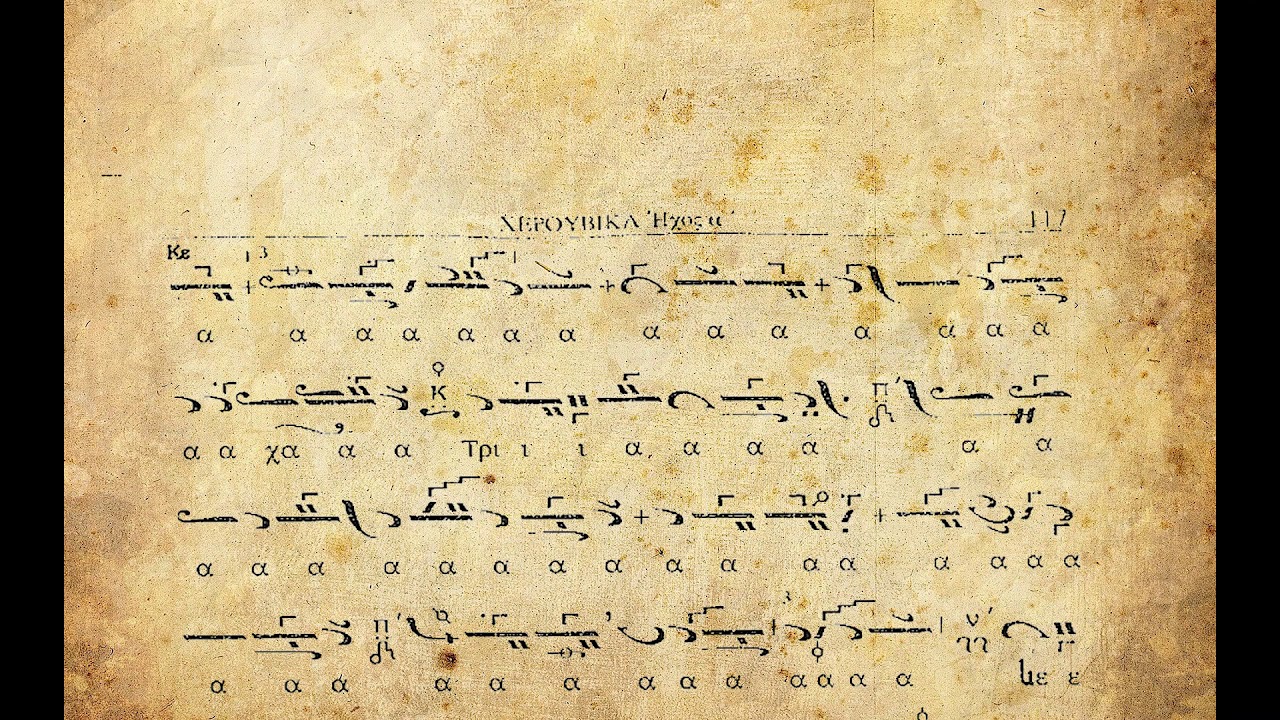 ΧΕΡΟΥΒΙΚΑ Ἦχος α΄ 117
Κε
α α α α α α α α α α α α α α
Κ Π΄
α α χα α α Τρι ι ι α α α α α α
α α α α α α α α α α α α α α α
Π΄ ν΄
α α α α α α α α α α α α α με ε